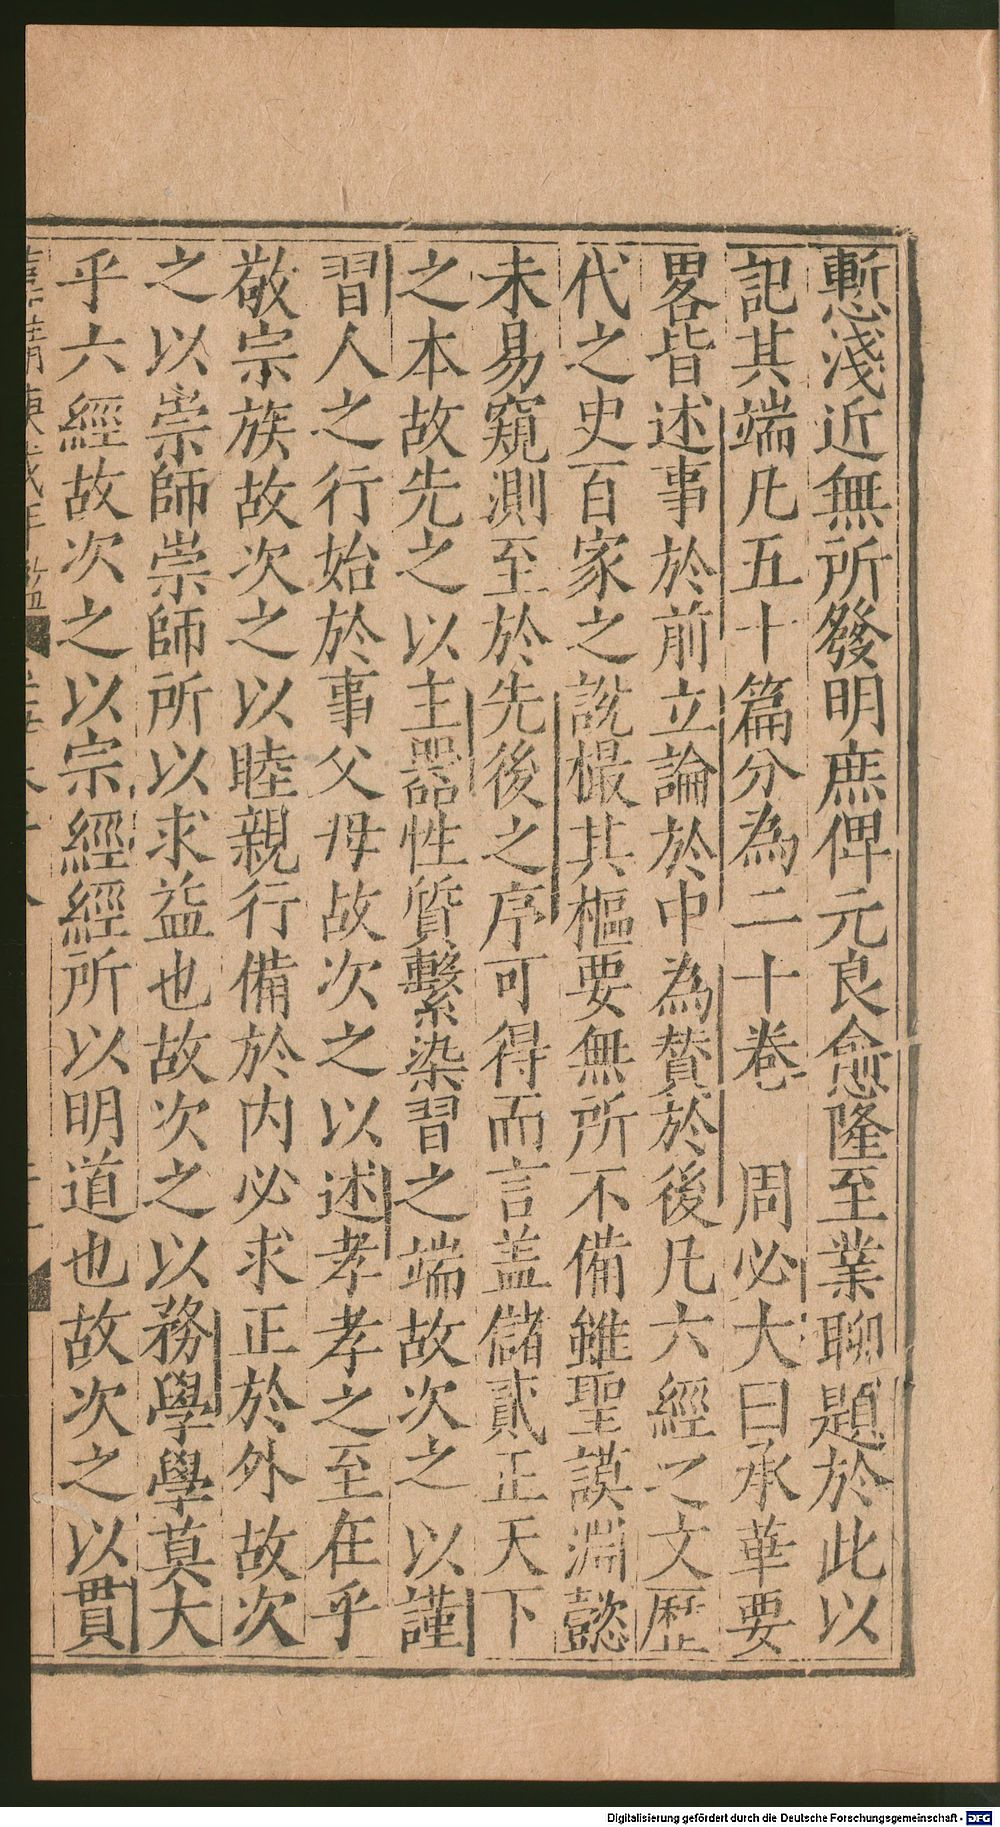 慙淺近無所發明庶俾元良愈隆至業聊題於此以
記其端凡五十篇分為二十卷　周必大曰承華要
畧皆述事於前立論於中為贊於後凡六經之文歷
代之史百家之說樶其樞要無所不備雖聖謨淵懿
未易窺測至於先後之序可得而言盖儲貳正天下
之本故先之以主器性質繫染習之端故次之以謹
習人之行始於事父母故次之以述孝孝之至在乎
敬宗族故次之以睦親行備於内必求正於外故次
之以崇師崇師所以求益也故次之以務學學莫大
乎六經故次之以宗經經所以明道也故次之以貫
Digitalisierung gefördert durch die Deutsche Forschungsgemeinschaft - DFG